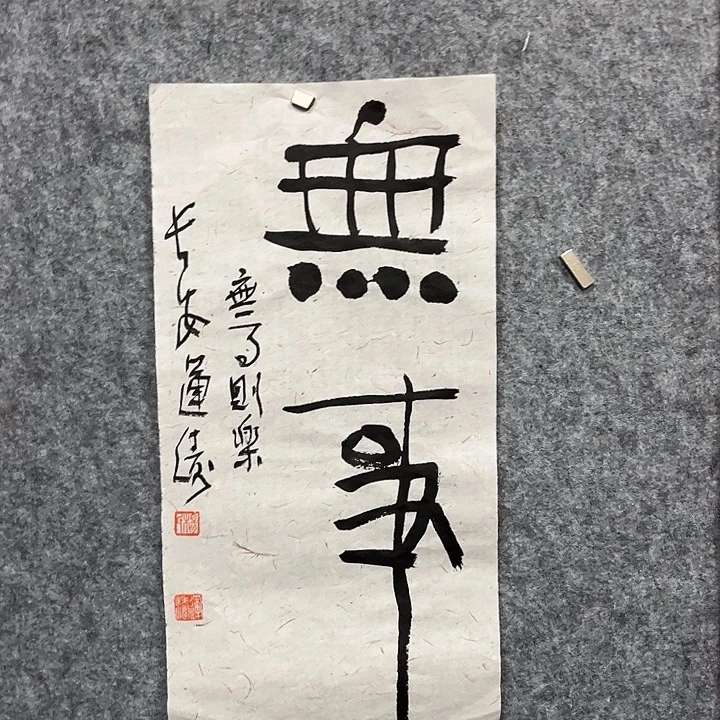 無事
無事則樂
长安蓮涛